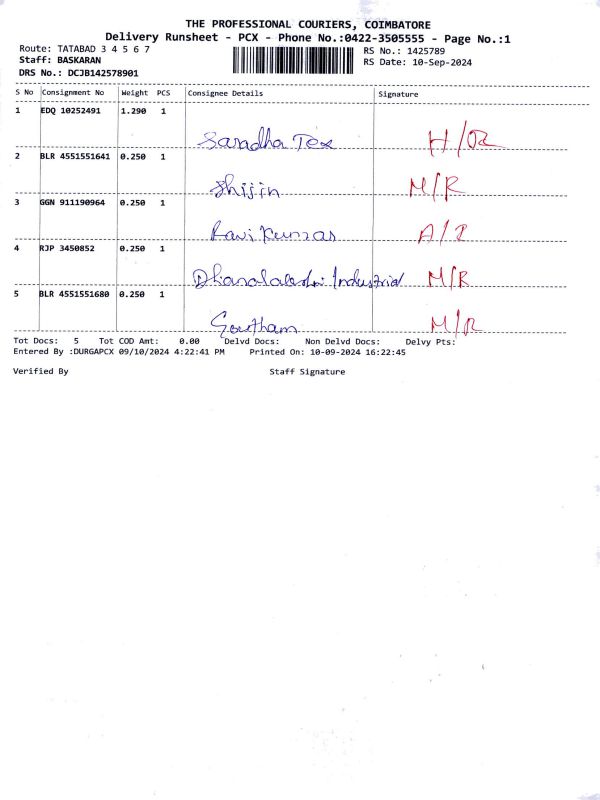 THE PROFESSIONAL COURIERS, COIMBATORE
Delivery Runsheet - PCX - Phone No.:0422-3505555 - Page No.:1
Route: TATABAD 3 4 5 6 7 RS No.: 1425789
Staff: BASKARAN RS Date: 10-Sep-2024
DRS No.: DCJB142578901
S No Consignment No Weight PCS Consignee Details Signature
1 EDQ 10252491 1.290 1
Saradha Tex H/R
2 BLR 4551551641 0.250 1
Shijin M/R
3 GGN 911190964 0.250 1
Ravi Kumar A/R
4 RJP 3450852 0.250 1
Dhanalakshmi Industrial M/R
5 BLR 4551551680 0.250 1
Goutham M/R
Tot Docs: 5 Tot COD Amt: 0.00 Delvd Docs: Non Delvd Docs: Delvy Pts:
Entered By :DURGAPCX 09/10/2024 4:22:41 PM Printed On: 10-09-2024 16:22:45
Verified By Staff Signature